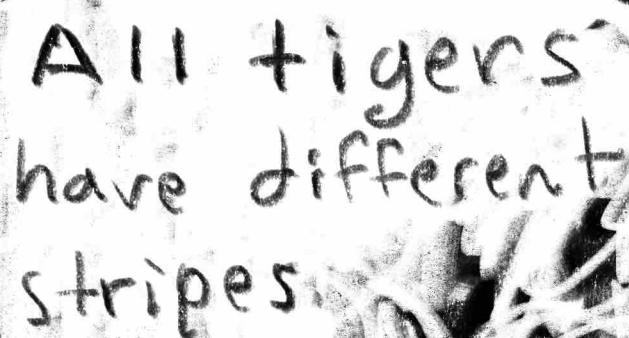 All tigers
have different
stripes.